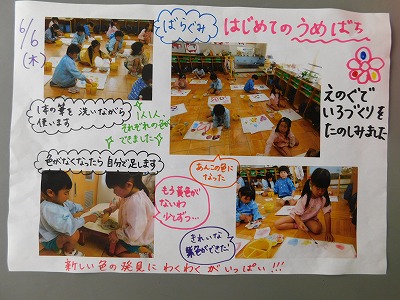 6/6
(木)
ばらぐみ
はじめてのうめばち
えのぐで
いろづくりを
たのしみました
1本の筆を洗いながら
使います
1人1人、
それぞれの色が
できました
色がなくなったら自分で足します
あんこの色に
なった
もう黄色が
ないわ
少しずつ…
きれいな
紫色ができた!
新しい色の発見にわくわくがいっぱい!!!